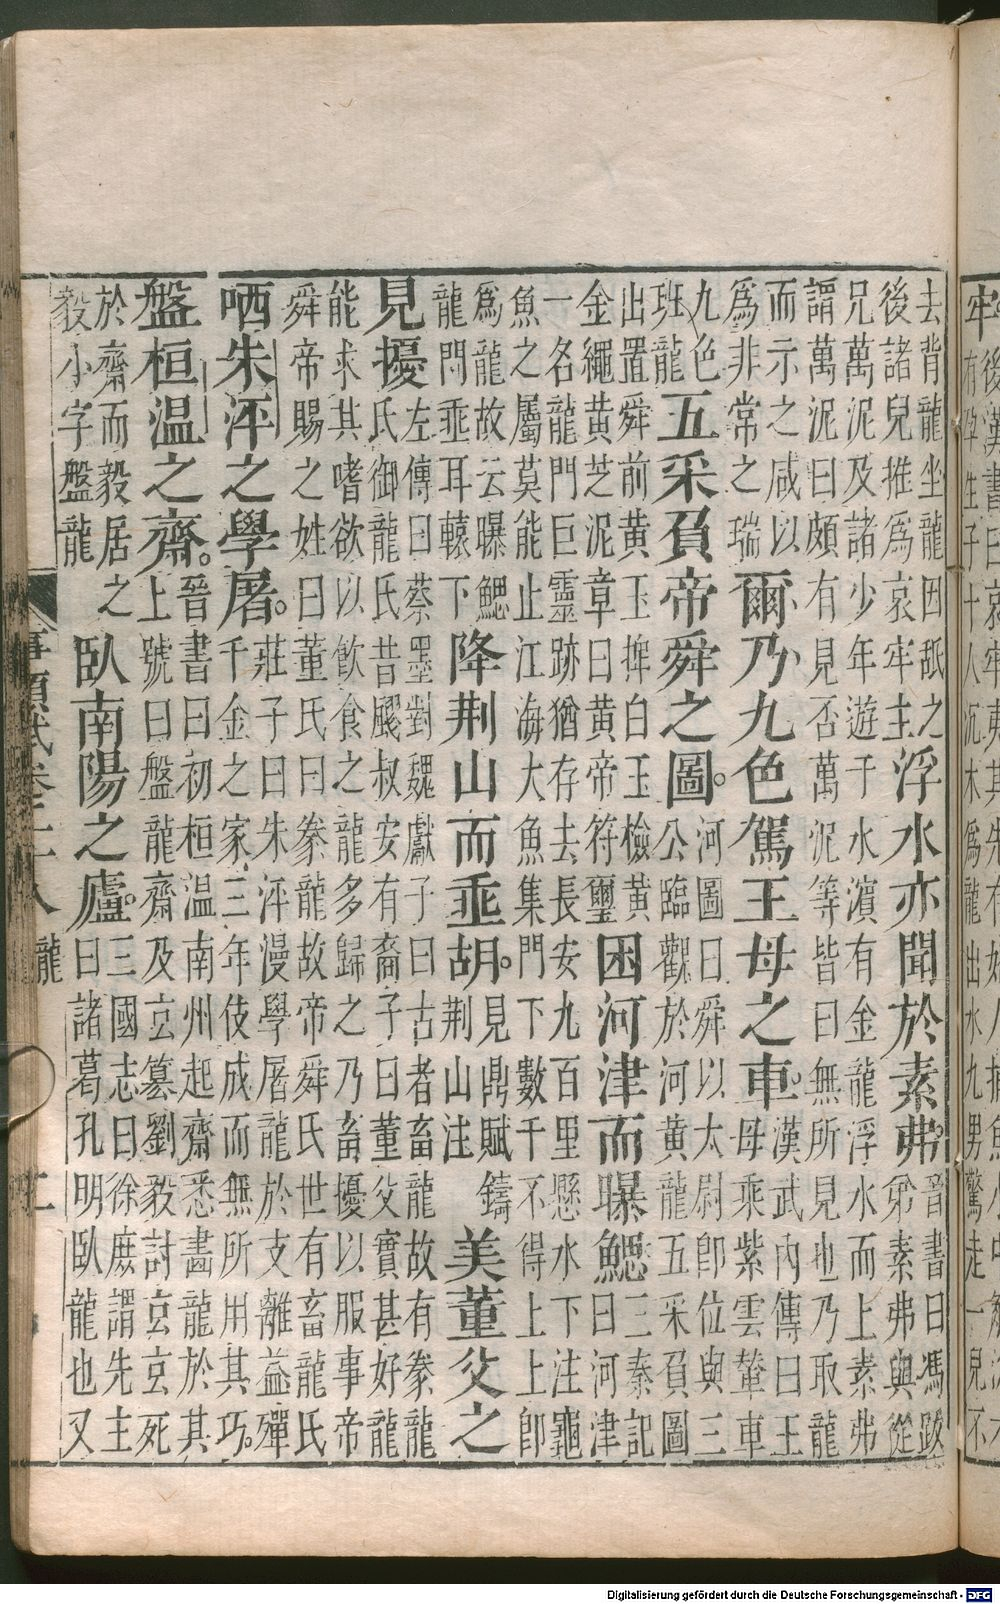 牢
後漢書曰哀牢夷其先有婦人捕魚水中觸沈木
有孕生子十人沉木為龍出水九男驚走一兒不
去背龍坐龍因舐之
後諸兒推為哀牢主
浮水亦聞於素弗。
晉書曰馮跋
弟素弗與從
兄萬泥及諸少年遊于水濵有金龍浮水而上素弗
謂萬泥曰頗有見否萬泥等皆曰無所見也乃取龍
而示之咸以
為非常之瑞
爾乃九色駕王母之車。
漢武內傳曰王
母乘紫雲輦車
九色
班龍
五采負帝舜之圖。
河圖曰舜以太尉即位與三
公臨觀於河黃龍五采負圖
出置舜前黃玉捭白玉檢黃
金繩黃芝泥章曰黃帝符璽
困河津而曝鰓
三秦記
曰河津
一名龍門巨靈跡猶存去長安九百里懸水下注龜
魚之屬莫能止江海大魚集門下數千不得上上即
為龍故云曝鰓
龍門垂耳轅下
降荆山而垂胡。
見鼎賦鑄
荆山注
美董父之
見擾
左傳曰蔡墨對魏獻子曰古者畜龍故有豢龍
氏御龍氏昔飂叔安有裔子曰董父實甚好龍
能求其嗜欲以飲食之龍多歸之乃畜擾以服事帝
舜帝賜之姓曰董氏曰豢龍故帝舜氏世有畜龍氏
哂朱泙之學屠。
莊子曰朱泙漫學屠龍於支離益殫
千金之家三年伎成而無所用其巧。
盤桓温之齋。
晉書曰初桓温南州起齋悉畫龍於其
上號曰盤龍齋及玄篡劉毅討玄玄死
於齋而毅居之
毅小字盤龍
臥南陽之廬。
三國志曰徐庶謂先主
曰諸葛孔明臥龍也又
事類賦卷二十八 龍 二
Digitalisierung gefördert durch die Deutsche Forschungsgemeinschaft - DFG